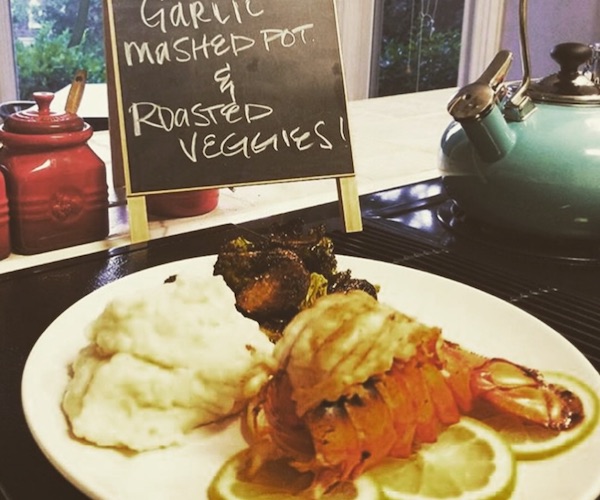 GARLIC
MASHED POT.
&
ROASTED
VEGGIES!